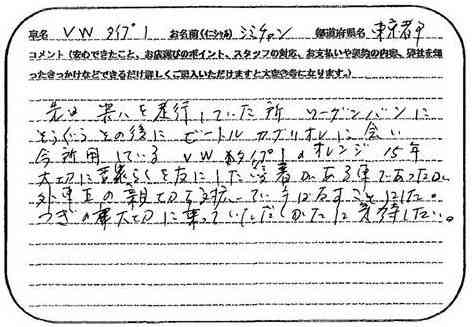 車名 VW タイプ1 お名前(イニシャル) ジミチャン 都道府県名 東京都下
コメント(安心できたこと、お店選びのポイント、スタッフの対応、お支払いや契約の内容、弊社を知
ったきっかけなどできるだけ詳しくご記入いただけますと大変参考になります。)
先日 を走行していた所 ワーゲンバンに
そうぐう その後に ビートル カブリオレに会い
今所用している VW タイプ1のオレンジ 15年
大切に 暮らしを友にした 着がある車であったが
外車王の親切な対応で 手ばなすことにした。
つぎの 大切に乗っていただくかたに期待したい。